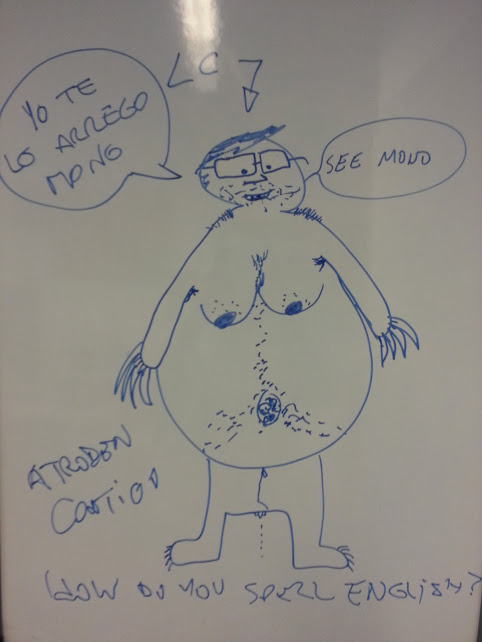 YO TE
LO ARREGO
MONO
LC7
SEE MONO
ATRODEN
CONTIGO
HOW DO YOU SPELL ENGLISH?